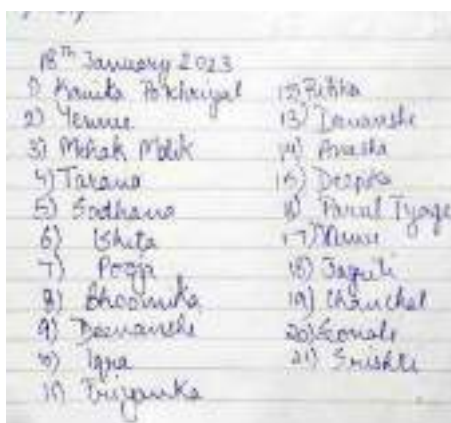 18th January 2023
1) Kanika Pokhriyal
2)
3) Mehak Malik
4) Tarana
5) Sadhana
6) Ishita
7) Pooja
8) Bhoomika
9)
10) Iqra
11) Priyanka
12) Ritika
13)
14)
15) Deepika
16) Parul Tyagi
17)
18) Jagriti
19) Chanchal
20) Sonali
21) Srishti